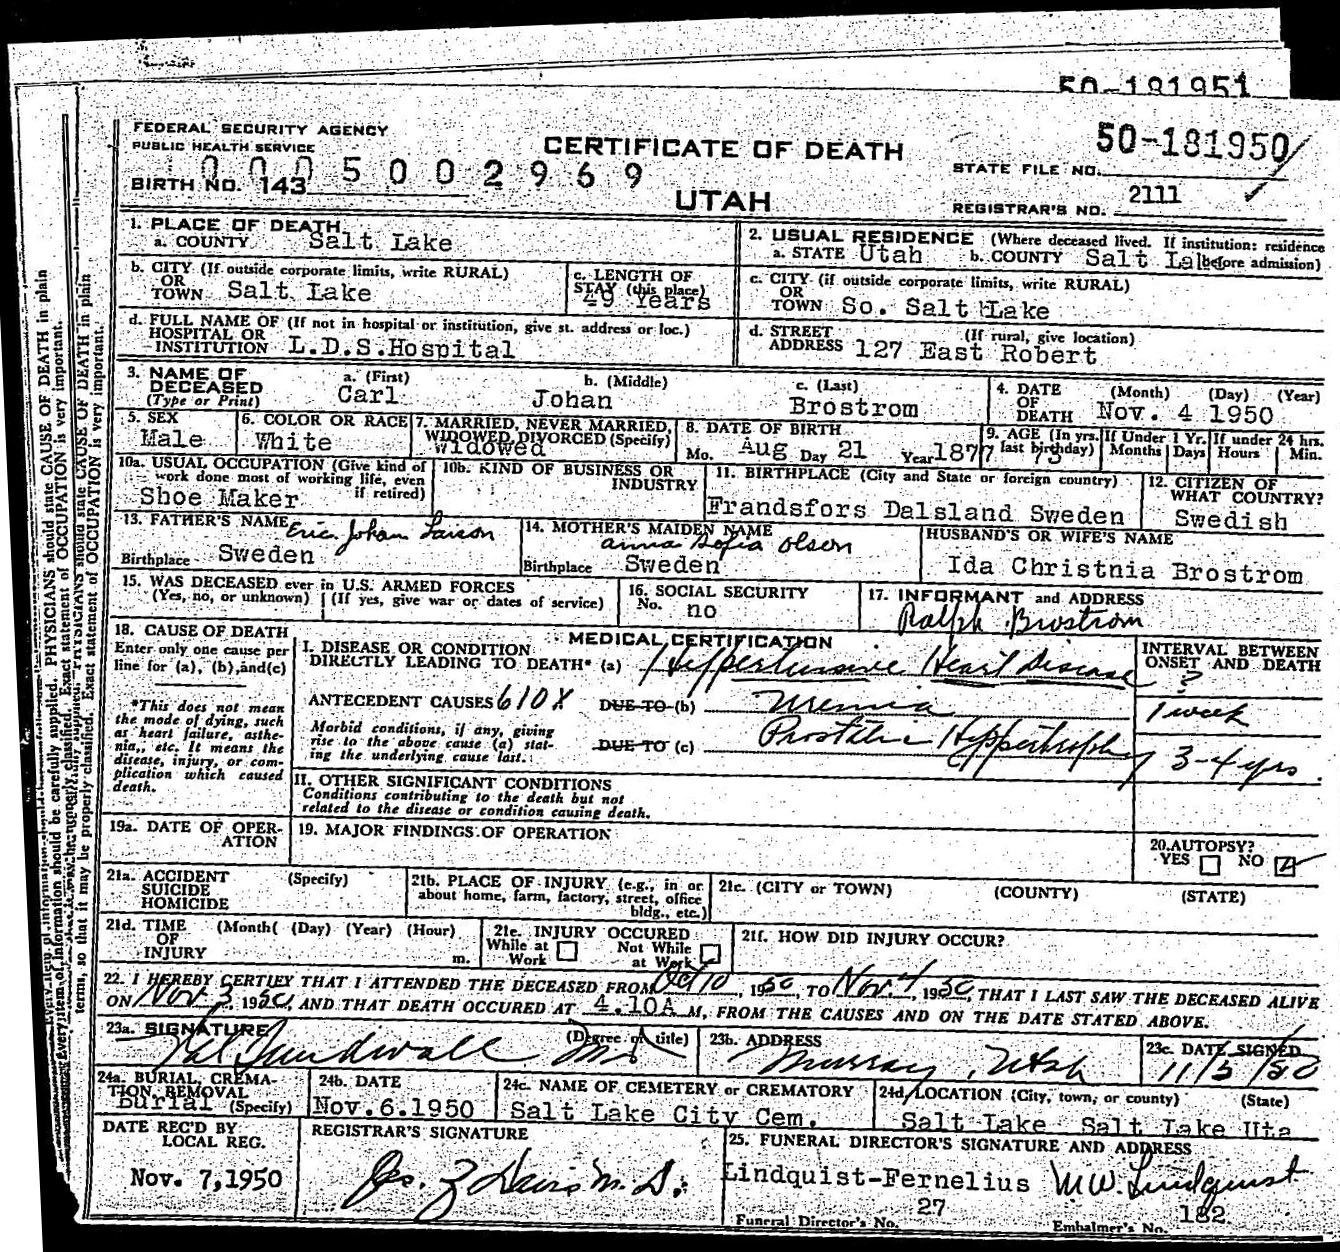 50-181951
FEDERAL SECURITY AGENCY
PUBLIC HEALTH SERVICE
0005002969
BIRTH NO. 143
CERTIFICATE OF DEATH
UTAH
50-181950
STATE FILE NO.
2111
REGISTRAR'S NO.
1. PLACE OF DEATH
a. COUNTY Salt Lake
2. USUAL RESIDENCE (Where deceased lived. If institution: residence
a. STATE Utah b. COUNTY Salt La before admission)
b. CITY (If outside corporate limits, write RURAL)
OR
TOWN Salt Lake
c. LENGTH OF
STAY (this place)
49 Years
c. CITY (if outside corporate limits, write RURAL)
OR
TOWN So. Salt Lake
d. FULL NAME OF (If not in hospital or institution, give st. address or loc.)
HOSPITAL OR
INSTITUTION L.D.S.Hospital
d. STREET (If rural, give location)
ADDRESS 127 East Robert
3. NAME OF
DECEASED
(Type or Print)
a. (First)
Carl
b. (Middle)
Johan
c. (Last)
Brostrom
4. DATE (Month) (Day) (Year)
OF
DEATH Nov. 4 1950
5. SEX
Male
6. COLOR OR RACE
White
7. MARRIED, NEVER MARRIED,
WIDOWED DIVORCED (Specify)
Widowed
8. DATE OF BIRTH
Mo. Aug Day 21 Year 1877
9. AGE (In yrs.
last birthday)
73
If Under 1 Yr.
Months Days
If under 24 hrs.
Hours Min.
10a. USUAL OCCUPATION (Give kind of
work done most of working life, even
if retired)
Shoe Maker
10b. KIND OF BUSINESS OR
INDUSTRY
11. BIRTHPLACE (City and State or foreign country)
Frandsfors Dalsland Sweden
12. CITIZEN OF
WHAT COUNTRY?
Swedish
13. FATHER'S NAME Eric Johan Larson
Birthplace Sweden
14. MOTHER'S MAIDEN NAME
Anna Sofia Olson
Birthplace Sweden
HUSBAND'S OR WIFE'S NAME
Ida Christnia Brostrom
15. WAS DECEASED ever in U.S. ARMED FORCES
(Yes, no, or unknown) (If yes, give war or dates of service)
16. SOCIAL SECURITY
No. no
17. INFORMANT and ADDRESS
Ralph Brostrom
18. CAUSE OF DEATH
Enter only one cause per
line for (a), (b), and (c)
*This does not mean
the mode of dying, such
as heart failure, asthe-
nia,, etc. It means the
disease, injury, or com-
plication which caused
death.
MEDICAL CERTIFICATION
I. DISEASE OR CONDITION
DIRECTLY LEADING TO DEATH* (a) Hyppertensive Heart Disease
ANTECEDENT CAUSES 610X DUE TO (b) Uremia
Morbid conditions, if any, giving
rise to the above cause (a) stat-
ing the underlying cause last.
DUE TO (c) Prostatic Hyppertrophy
INTERVAL BETWEEN
ONSET AND DEATH
?
1 week
3-4 yrs.
II. OTHER SIGNIFICANT CONDITIONS
Conditions contributing to the death but not
related to the disease or condition causing death.
19a. DATE OF OPER-
ATION
19. MAJOR FINDINGS OF OPERATION
20. AUTOPSY?
YES NO
21a. ACCIDENT (Specify)
SUICIDE
HOMICIDE
21b. PLACE OF INJURY (e.g., in or
about home, farm, factory, street, office
bldg., etc.)
21c. (CITY or TOWN) (COUNTY) (STATE)
21d. TIME (Month( (Day) (Year) (Hour)
OF
INJURY m.
21e. INJURY OCCURED
While at Work
Not While at Work
21f. HOW DID INJURY OCCUR?
22. I HEREBY CERTIFY THAT I ATTENDED THE DECEASED FROM Oct 10, 1950, TO Nov. 4, 1950, THAT I LAST SAW THE DECEASED ALIVE
ON Nov. 3 1950, AND THAT DEATH OCCURED AT 4.10A M, FROM THE CAUSES AND ON THE DATE STATED ABOVE.
23a. SIGNATURE (Degree of title)
Val Sundwall MD
23b. ADDRESS
Murray, Utah
23c. DATE SIGNED
11/5/50
24a. BURIAL, CREMA-
TION, REMOVAL
Burial (Specify)
24b. DATE
Nov.6.1950
24c. NAME OF CEMETERY or CREMATORY
Salt Lake City Cem.
24d. LOCATION (City, town, or county) (State)
Salt Lake Salt Lake Uta
DATE REC'D BY
LOCAL REG.
Nov. 7,1950
REGISTRAR'S SIGNATURE
Jos. Z Davis M.D.
25. FUNERAL DIRECTOR'S SIGNATURE AND ADDRESS
Lindquist-Fernelius M.W. Lindquist
27
Funeral Director's No.
182
Embalmer's No.
Every item of information should be carefully supplied. PHYSICIANS should state CAUSE OF DEATH in plain
terms, so that it may be properly classified. Exact statement of OCCUPATION is very important.